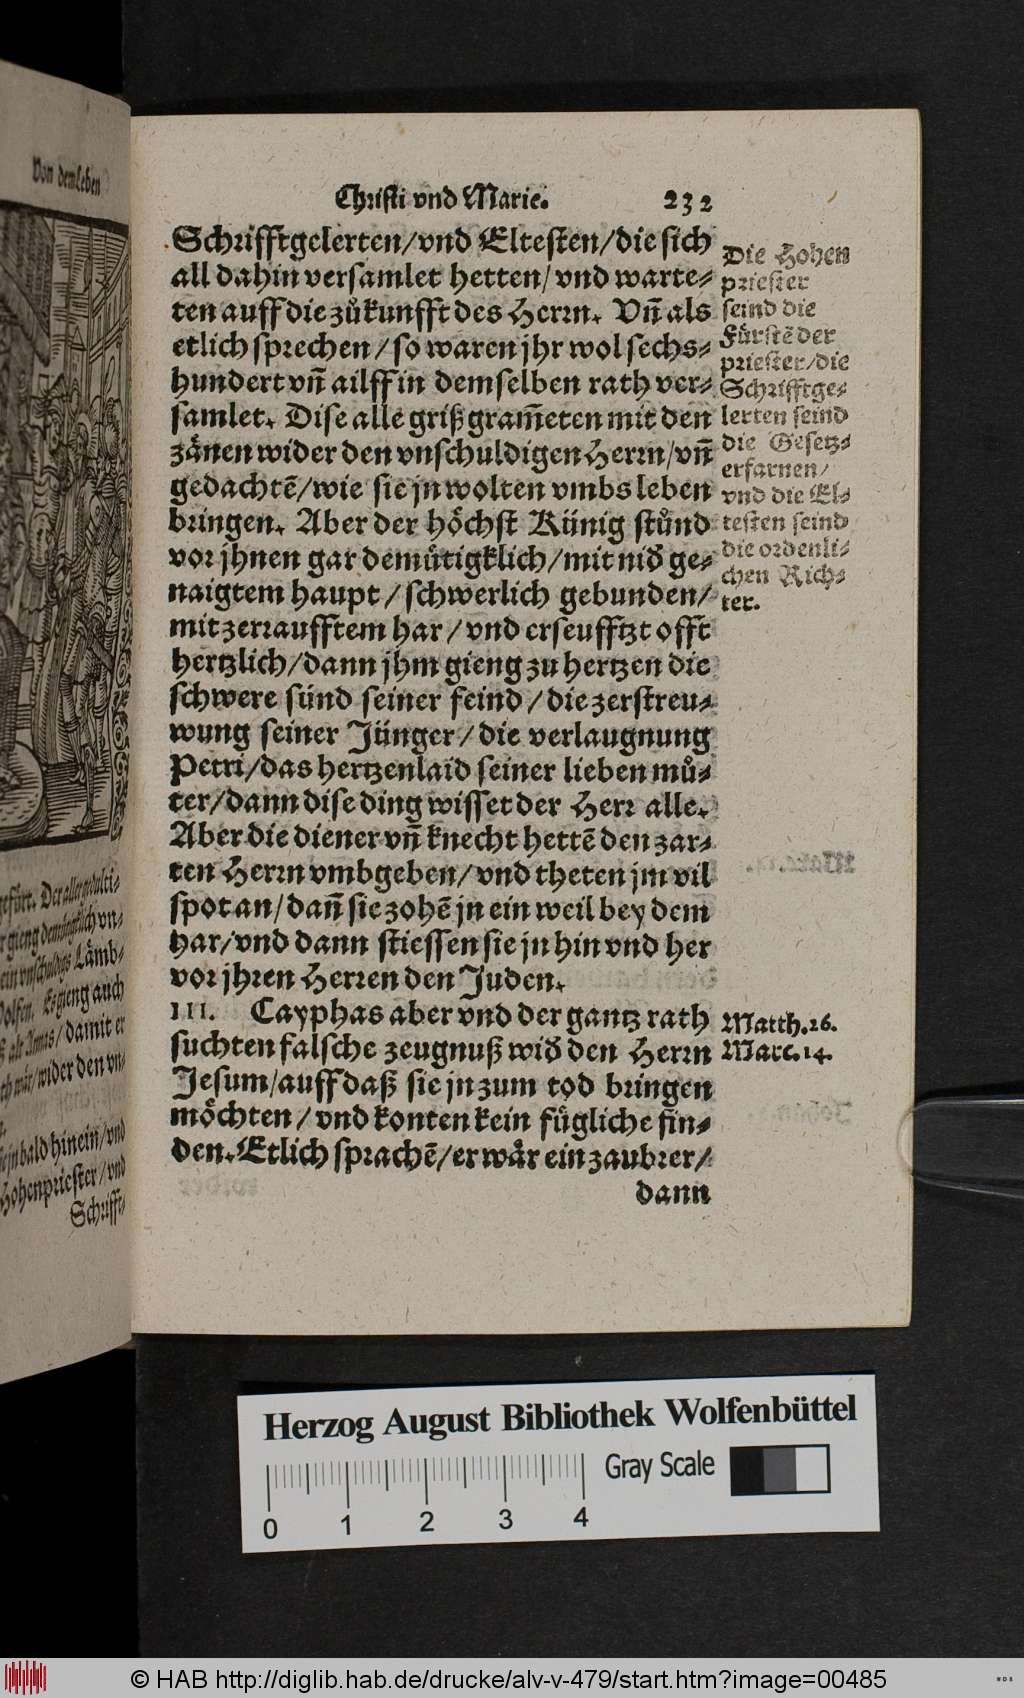 Von dem Leben
gefürt. Der aller gedulti⸗
gieng demütigklich vn⸗
ein vnschuldigs Lämb⸗
Wolfen. Es gieng auch
alt Annas/damit er
wär/wider den vn⸗
bald hinein/vnd
Hohenpriester/vnd
Schrifft⸗
Christi vnd Marie. 232
Schrifftgelerten/vnd Eltesten/die sich
all dahin versamlet hetten/vnd warte⸗
ten auff die zůkunfft des Herrn. Vn̄ als
etlich sprechen/so waren jhr wol sechs⸗
hundert vn̄ ailff in demselben rath ver⸗
samlet. Dise alle grißgram̄eten mit den
zänen wider den vnschuldigen Herrn/vn̄
gedachtē/wie sie jn wolten vmbs leben
bringen. Aber der höchst Künig stůnd
vor jhnen gar demütigklich/mit nid̕ ge⸗
naigtem haupt/schwerlich gebunden/
mit zerraufftem har/vnd erseufftzt offt
hertzlich/dann jhm gieng zu hertzen die
schwere sünd seiner feind/die zerstreu⸗
wung seiner Jünger/die verlaugnung
Petri/das hertzenlaid seiner lieben můͦ⸗
ter/dann dise ding wisset der Herr alle.
Aber die diener vn̄ knecht hettē den zar⸗
ten Herrn vmbgeben/vnd theten jm vil
spot an/dan̄ sie zohē jn ein weil bey dem
har/vnd dann stiessen sie jn hin vnd her
vor jhren Herren den Juden.
III. Cayphas aber vnd der gantz rath
suchten falsche zeugnuß wid̕ den Herrn
Jesum/auff daß sie jn zum tod bringen
möchten/vnd konten kein fügliche fin⸗
den. Etlich sprachē/er wär ein zaubrer/
dann
Die Hohen
priester
seind die
Fürstē der
priester/die
Schrifftge⸗
lerten seind
die Gesetz⸗
erfarnen/
vnd die El⸗
testen seind
die ordenli⸗
chen Rich⸗
ter.
Matth. 26.
Marc. 14.
Herzog August Bibliothek Wolfenbüttel
Gray Scale
0 1 2 3 4
© HAB http://diglib.hab.de/drucke/alv-v-479/start.htm?image=00485